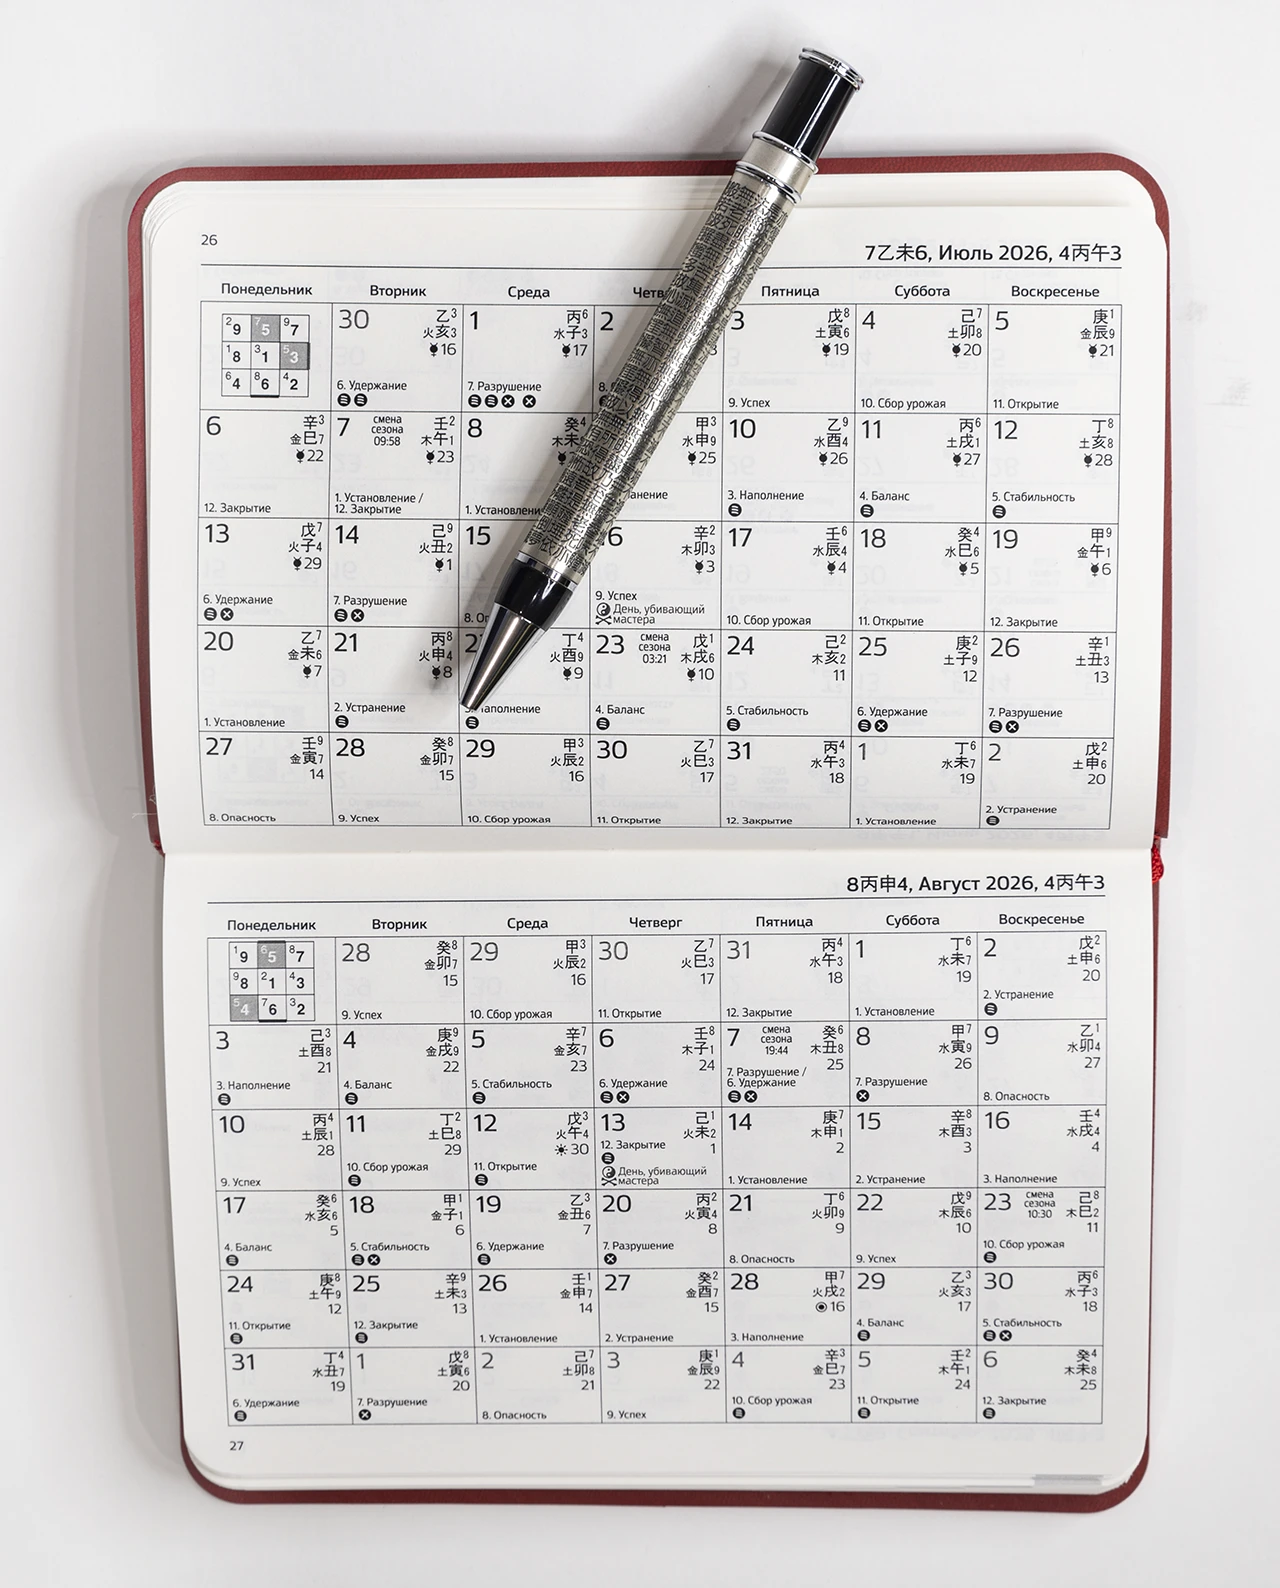 26
7乙未6, Июль 2026, 4丙午3
Понедельник Вторник Среда Пятница Суббота Воскресенье
2 9 7 5 9 7
1 8 3 1 5 3
6 4 8 6 4 2
30 乙3 火亥3 16
6. Удержание
1 丙6 水子3 17
7. Разрушение
2
3 戊8 土寅6 19
9. Успех
4 己7 土卯8 20
10. Сбор урожая
5 庚1 金辰9 21
11. Открытие
6 辛3 金巳7 22
12. Закрытие
7 смена сезона 09:58 壬2 木午1 23
1. Установление /
12. Закрытие
8 癸4
甲3 水申9 25
10 乙9 水酉4 26
3. Наполнение
11 丙6 土戌1 27
4. Баланс
12 丁8 土亥8 28
5. Стабильность
13 戊7 火子4 29
6. Удержание
14 己9 火丑2 1
7. Разрушение
15
辛2 木卯3 3
9. Успех
День, убивающий
мастера
17 壬6 水辰4 4
10. Сбор урожая
18 癸4 水巳6 5
11. Открытие
19 甲9 金午1 6
12. Закрытие
20 乙7 金未6 7
1. Установление
21 丙8 火申4 8
2. Устранение
丁4 火酉9 9
23 смена сезона 03:21 戊1 木戌6 10
4. Баланс
24 己2 木亥2 11
5. Стабильность
25 庚2 土子9 12
6. Удержание
26 辛1 土丑3 13
7. Разрушение
27 壬9 金寅7 14
8. Опасность
28 癸8 金卯7 15
9. Успех
29 甲3 火辰2 16
10. Сбор урожая
30 乙7 火巳3 17
11. Открытие
31 丙4 水午3 18
12. Закрытие
1 丁6 水未7 19
1. Установление
2 戊2 土申6 20
2. Устранение
8丙申4, Август 2026, 4丙午3
Понедельник Вторник Среда Четверг Пятница Суббота Воскресенье
1 9 6 5 8 7
9 8 2 1 4 3
5 4 7 6 3 2
28 癸8 金卯7 15
9. Успех
29 甲3 火辰2 16
10. Сбор урожая
30 乙7 火巳3 17
11. Открытие
31 丙4 水午3 18
12. Закрытие
1 丁6 水未7 19
1. Установление
2 戊2 土申6 20
2. Устранение
3 己3 土酉8 21
3. Наполнение
4 庚9 金戌9 22
4. Баланс
5 辛7 金亥7 23
5. Стабильность
6 壬8 木子1 24
6. Удержание
7 смена сезона 19:44 癸6 木丑8 25
7. Разрушение /
6. Удержание
8 甲7 水寅9 26
7. Разрушение
9 乙1 水卯4 27
8. Опасность
10 丙4 土辰1 28
9. Успех
11 丁2 土巳8 29
10. Сбор урожая
12 戊3 火午4 30
11. Открытие
13 己1 火未2 1
12. Закрытие
День, убивающий
мастера
14 庚7 木申1 2
1. Установление
15 辛8 木酉3 3
2. Устранение
16 壬4 水戌4 4
3. Наполнение
17 癸6 水亥6 5
4. Баланс
18 甲1 金子1 6
5. Стабильность
19 乙3 金丑6 7
6. Удержание
20 丙2 火寅4 8
7. Разрушение
21 丁6 火卯9 9
8. Опасность
22 戊9 木辰6 10
9. Успех
23 смена сезона 10:30 己8 木巳2 11
10. Сбор урожая
24 庚8 土午9 12
11. Открытие
25 辛9 土未3 13
12. Закрытие
26 壬1 金申7 14
1. Установление
27 癸2 金酉7 15
2. Устранение
28 甲7 火戌2 16
3. Наполнение
29 乙3 火亥3 17
4. Баланс
30 丙6 水子3 18
5. Стабильность
31 丁4 水丑7 19
6. Удержание
1 戊8 土寅6 20
7. Разрушение
2 己7 土卯8 21
8. Опасность
3 庚1 金辰9 22
9. Успех
4 辛3 金巳7 23
10. Сбор урожая
5 壬2 木午1 24
11. Открытие
6 癸4 木未8 25
12. Закрытие
27